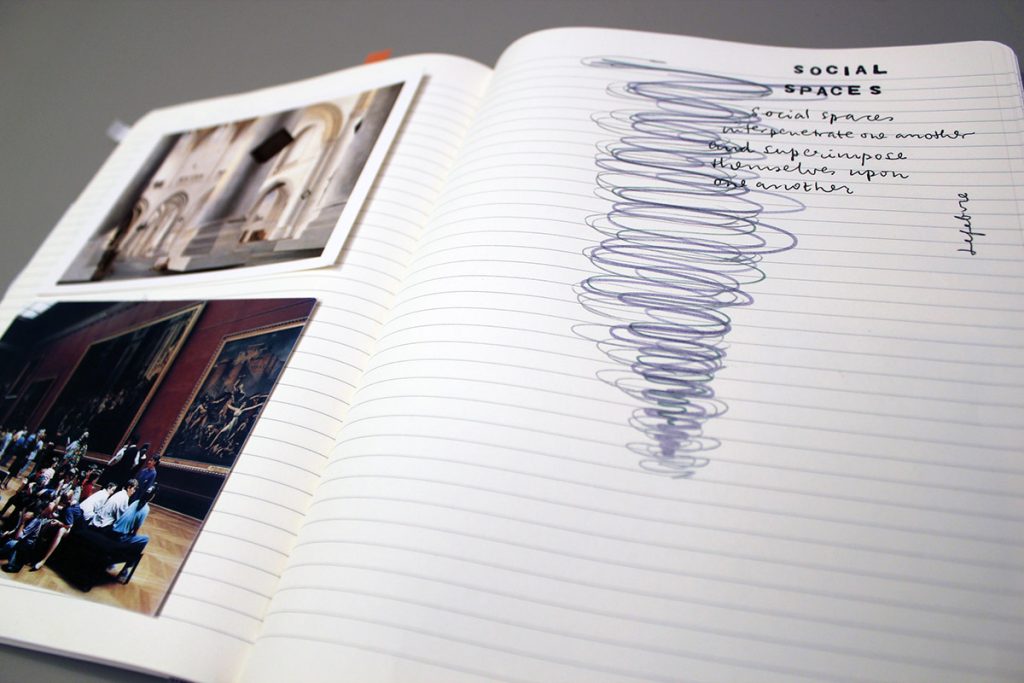 SOCIAL
SPACES
Social spaces
interpenetrate one another
and superimpose
themselves upon
one another
Lefebvre